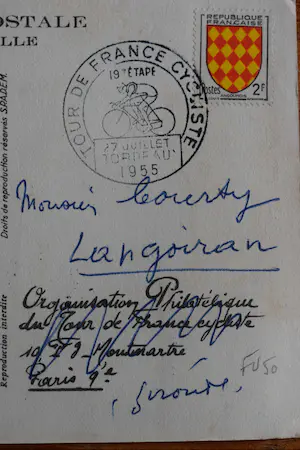 POSTALE
ILLE
TOUR DE FRANCE CYCLISTE
19e ETAPE
27 JUILLET
BORDEAUX
1955
REPUBLIQUE
FRANÇAISE
Postes
2F
ANGOUMOIS
Droits de reproduction réservés SPADEM.
Reproduction interdite
Monsieur Courty
Langoiran
Organisation Philatélique
du Tour de France cycliste
10 Fg Montmartre
Paris 9e
(Gironde)
FV50